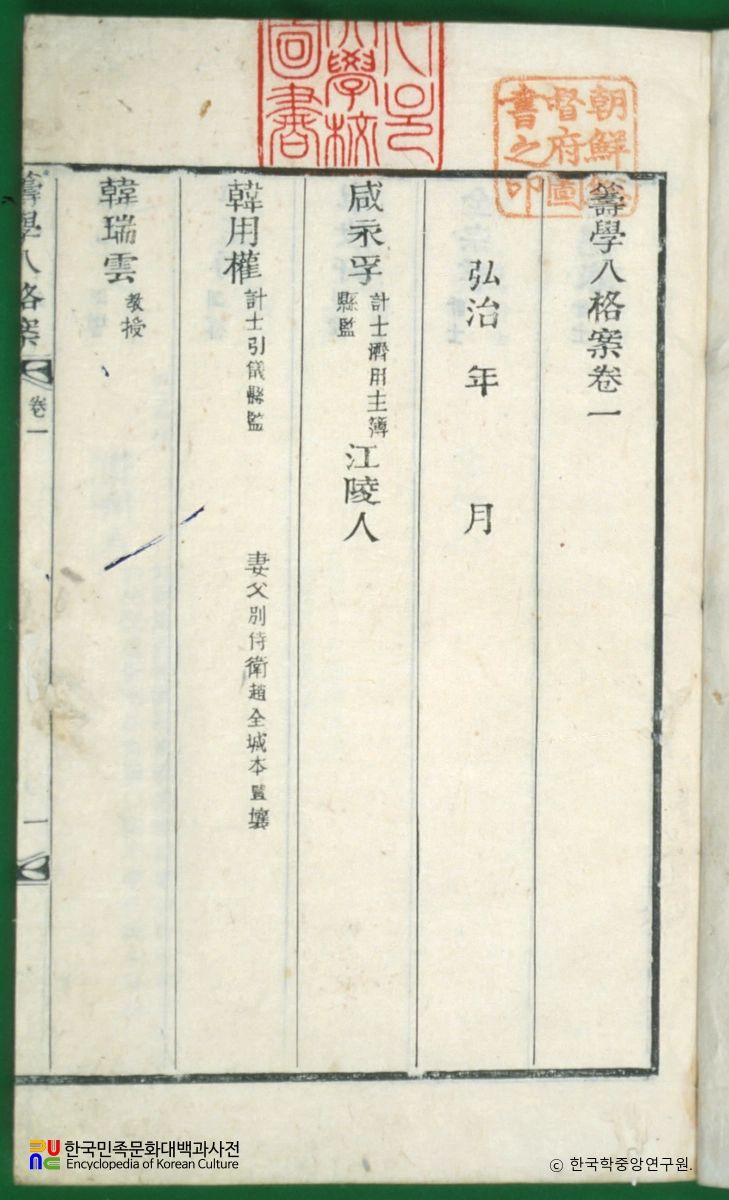 籌學八格案卷一
弘治 年 月
咸永孚 計士濟用主簿
縣監
江陵人
韓用權 計士引儀縣監 妻父別侍衛趙全城本暨壤
韓瑞雲 敎授
籌學八格案 卷一 一
朝鮮
督府圖
書之印
學校
圖書
한국민족문화대백과사전
Encyclopedia of Korean Culture
© 한국학중앙연구원.